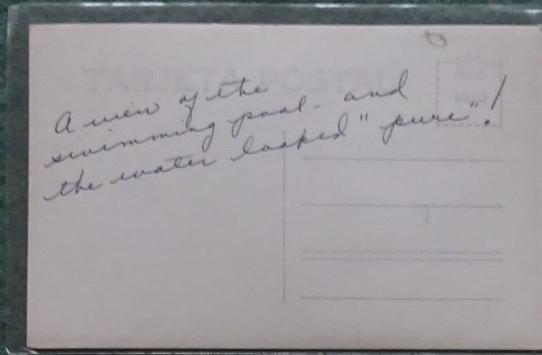 TARJETA POSTAL
A view of the
swimming pool - and
the water looked "pure"!